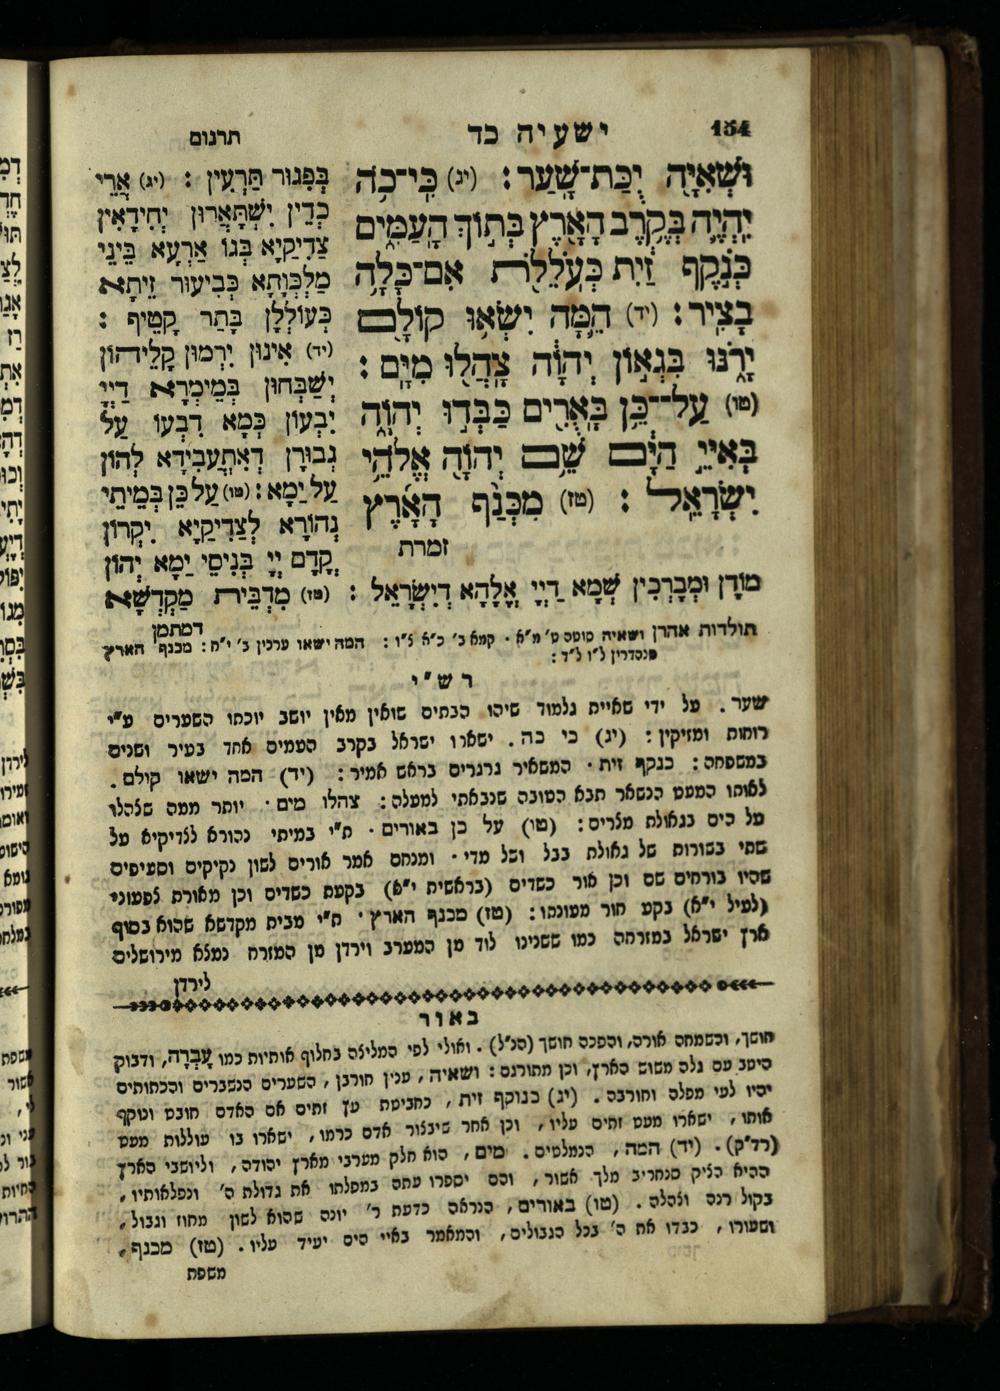 154
ישעיה כד
תרגום
וּשְׁאִיָּ֖ה יֻכַּת־שָֽׁעַר׃ (יג) כִּי־כֹ֥ה
יִֽהְיֶ֛ה בְּקֶ֥רֶב הָאָ֖רֶץ בְּת֣וֹךְ הָֽעַמִּ֑ים
כְּנֹ֣קֶף זַ֔יִת כְּעֹֽלֵלֹ֖ת אִם־כָּלָ֥ה
בָצִֽיר׃ (יד) הֵ֛מָּה יִשְׂא֥וּ קוֹלָ֖ם
יָרֹ֑נּוּ בִּגְא֣וֹן יְהוָֹ֔ה צָֽהֲל֖וּ מִיָּֽם׃
(טו) עַל־כֵּ֥ן בָּֽאֻרִ֖ים כַּבְּד֣וּ יְהוָֹ֑ה
בְּאִיֵּ֣י הַיָּ֔ם שֵׁ֥ם יְהוָֹ֖ה אֱלֹהֵ֥י
יִשְׂרָאֵֽל׃ (טז) מִכְּנַ֨ף הָאָ֜רֶץ
זמרת
בְּפִגּוּר תַּרְעִין׃ (יג) אֲרֵי
כְדֵין יִשְׁתָּאֲרוּן יְחִידָאִין
צַדִּיקַיָּא בְּגוֹ אַרְעָא בֵּינֵי
מַלְכְּוָתָא כְּבִיעוּר זֵיתָא
כְּעוֹלְלָן בָּתַר קָטֵיף׃
(יד) אִינוּן יְרִמוּן קָלֵיהוֹן
יְשַׁבְּחוּן בְּמֵימְרָא דַּיְיָ
יִבְעוּן כְּמָא דִּבְעוּ עַל
גְּבוּרָן דְּאִתְעֲבִידָא לְהוֹן
עַל יַמָּא׃ (טו) עַל כֵּן בְּמֵיתֵי
נְהוֹרָא לְצַדִּיקַיָּא יְקָרוּן
קֳדָם יְיָ בְּנִיסֵי יַמָּא יְהוֹן
מוֹדָן וּמְבָרְכִין שְׁמָא דַּיְיָ אֱלָהָא דְיִשְׂרָאֵל׃ (טז) מִדְּבֵית מַקְדְּשָׁא
דמתמן
תולדות אהרן ושאיה סוטה ט׳ מ״א · קמא ב׳ כ״א ל״ו : המה ישאו ערכין ב׳ י״ח : מכנף הארץ
סנהדרין ל״ו ל״ד :
רש״י
שער . על ידי שאיית גלמוד שיהו הבתים שואין מאין יושב יוכתו השערים ע״י
רוחות ומזיקין : (יג) כי כה . ישארו ישראל בקרב העמים אחד בעיר ושנים
במשפחה : כנקף זית · המשאיר גרגרים בראש אמיר : (יד) המה ישאו קולם .
לאותו המעט הנשאר תבא הטובה שנבאתי למעלה : צהלו מים · יותר ממה שצהלו
על הים בגאולת מצרים : (טו) על כן באורים · ת״י במיתי נהורא לצדיקיא על
שתי בשורות של גאולת בבל ושל מדי · ומנחם אמר אורים לשון נקיקים וסעיפים
שהיו בורחים שם וכן אור כשדים (בראשית י״א) בקעת כשדים וכן מאורת לפעוני
(לעיל י״א) בקע חור מעונתו : (טז) מכנף הארץ · ת״י מבית מקדשא שהוא בסוף
ארץ ישראל במזרחה כמו ששנינו לוד מן המערב וירדן מן המזרח נמצא מירושלים
לירדן
באור
חושך, וכשמחה אורה, והפכה חושך (הנ״ל) . ואולי לפי המליצה בחלוף אותיות כמו עָבְרָה, ודבוק
היטב עם גלה משוש הארץ, וכן מתורגם : ושאיה, ענין חורבן, השערים הנשברים והכתותים
יהיו לעי מפלה וחורבה . (יג) כנוקף זית, כחביטת עץ זתים אם האדם חובט ונוקף
אותו, ישארו מעט זתים עליו, וכן אחר שיבצור אדם כרמו, ישארו בו עוללות מעט
(רד״ק) . (יד) המה, הנמלטים . מים, הוא חלק מערבי מארץ יהודה, וליושבי הארץ
ההיא הציק סנחריב מלך אשור, והם יספרו עתה במפלתו את גדולת ה׳ ונפלאותיו,
בקול רנה וצהלה . (טו) באורים, הנראה כדעת ר׳ יונה שהוא לשון מחוז וגבול,
ושעורו, כבדו את ה׳ בכל הגבולים, והמאמר באיי הים יעיד עליו . (טז) מכנף,
משפת